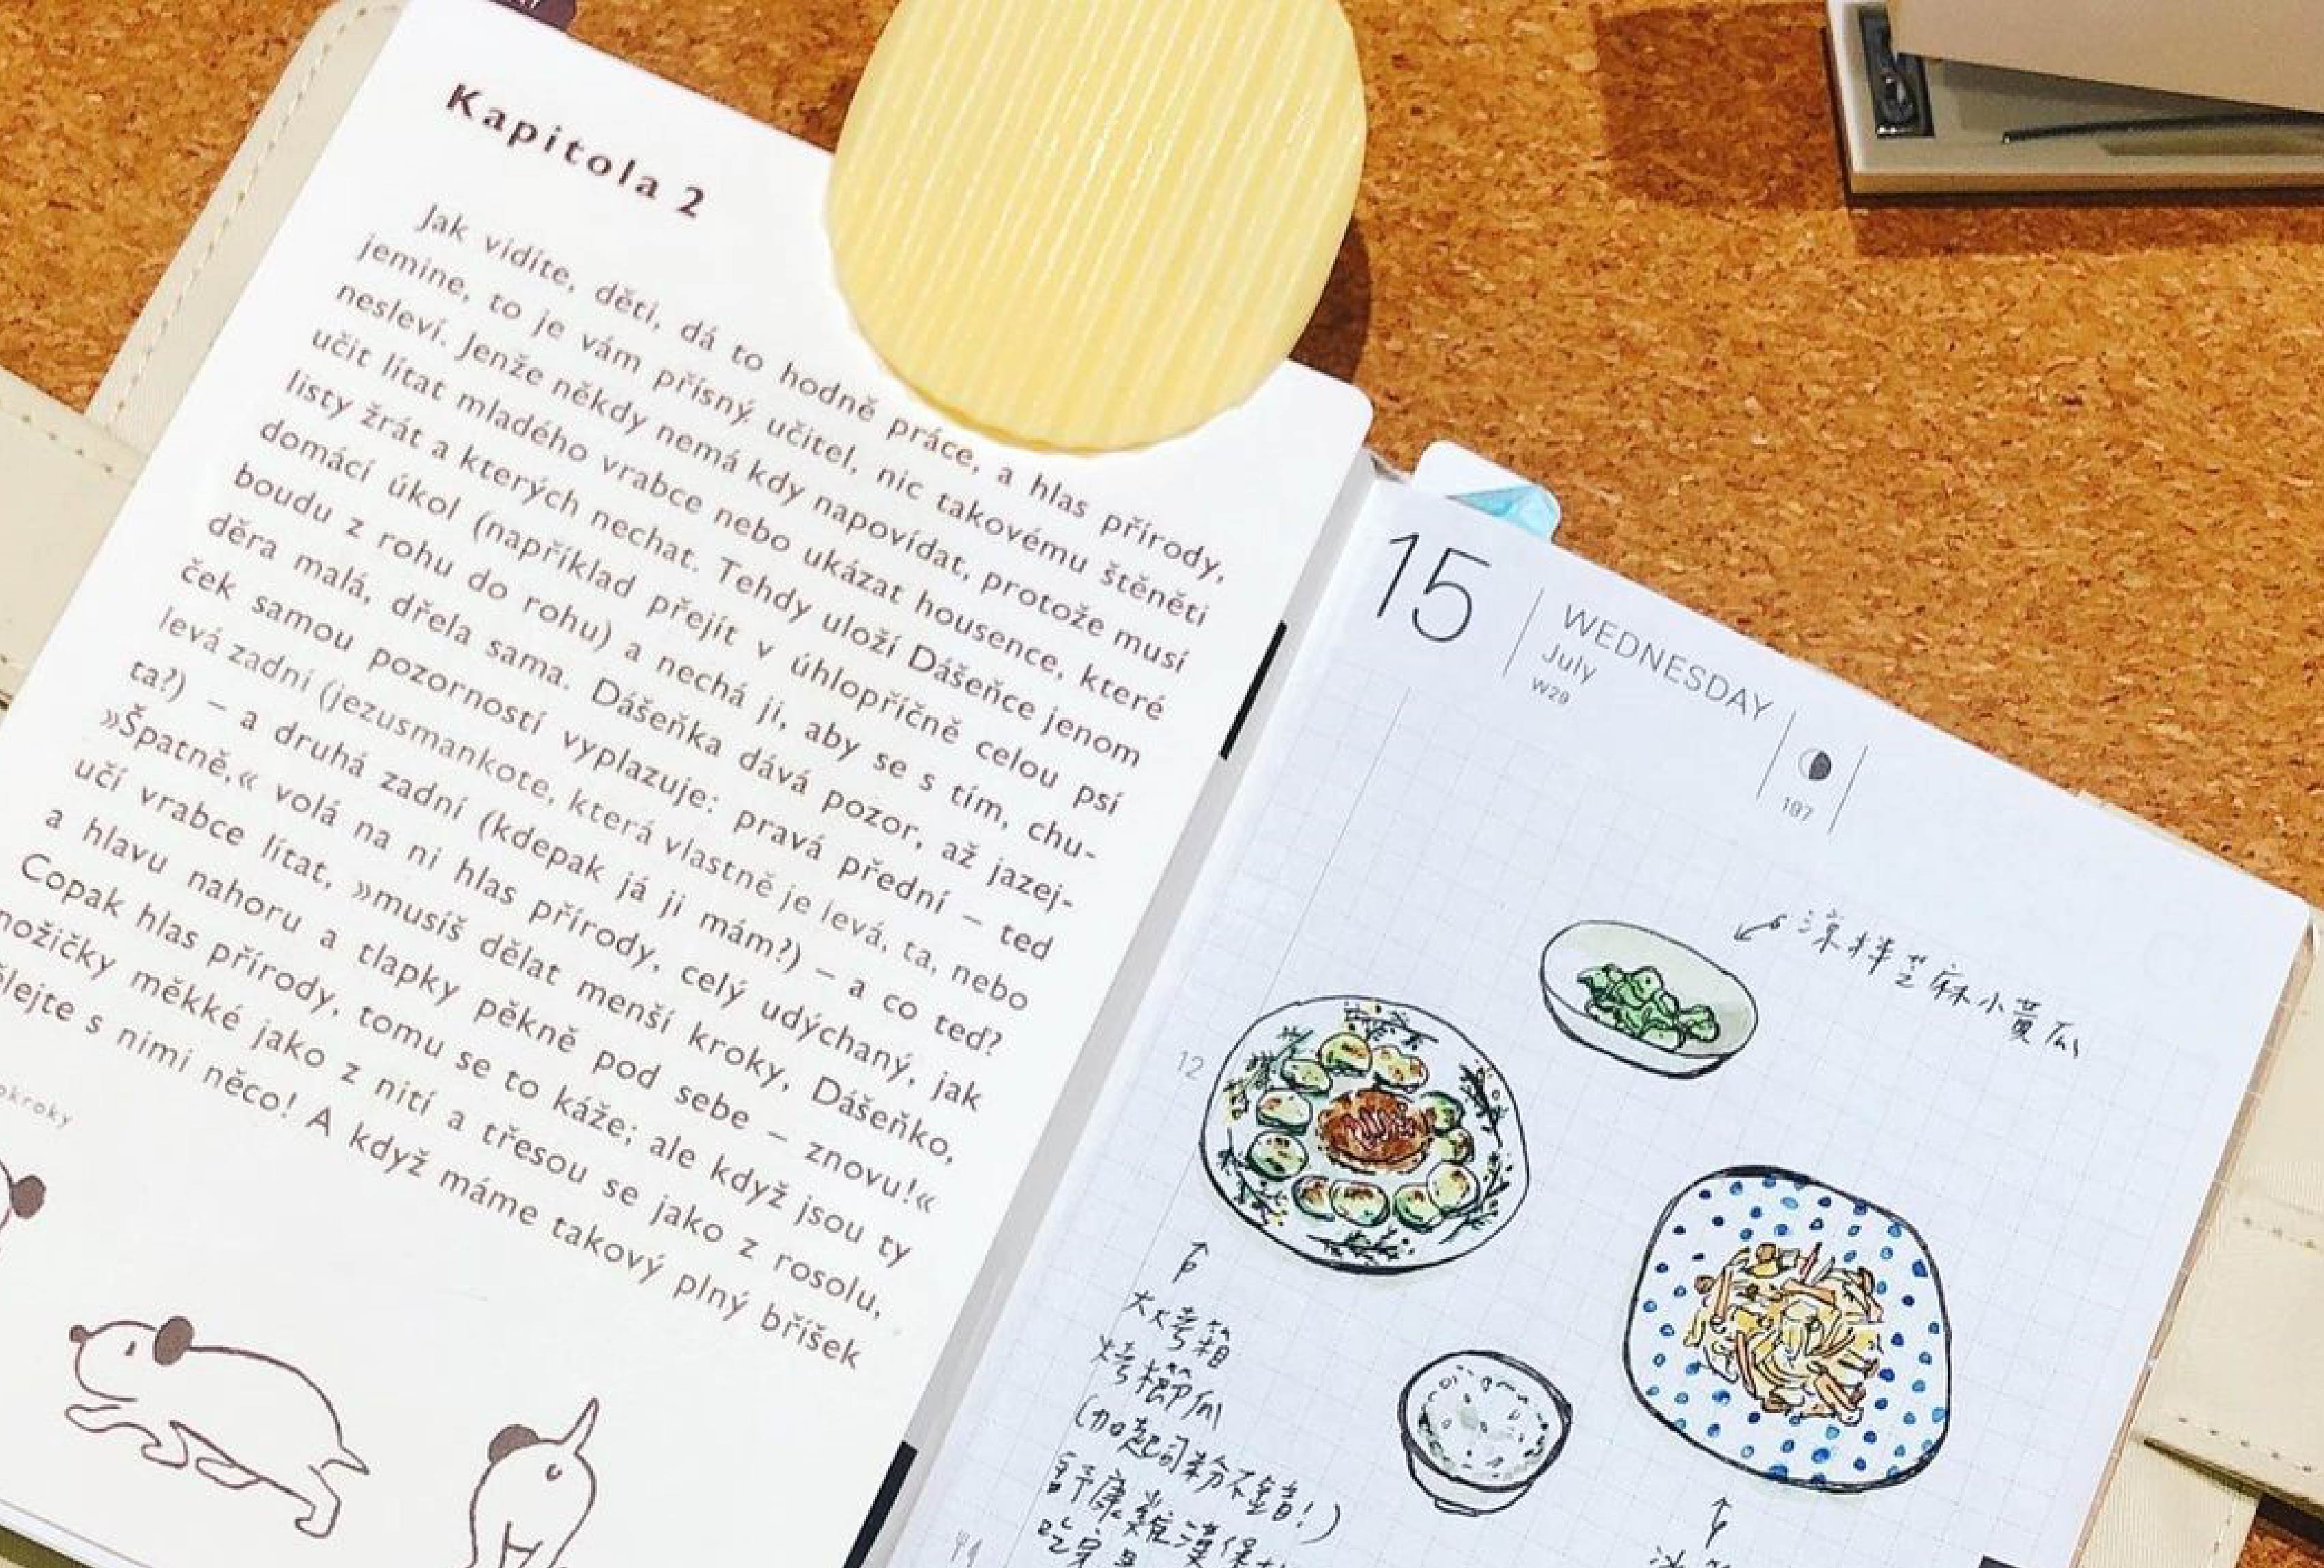 Kapitola 2
Jak vidíte, děti, dá to hodně práce, a hlas přírody,
jemine, to je vám přísný učitel, nic takovému štěněti
nesleví. Jenže někdy nemá kdy napovídat, protože musí
učit lítat mladého vrabce nebo ukázat housence, které
listy žrát a kterých nechat. Tehdy uloží Dášeňce jenom
domácí úkol (například přejít v úhlopříčně celou psí
boudu z rohu do rohu) a nechá ji, aby se s tím, chu-
děra malá, dřela sama. Dášeňka dává pozor, až jazej-
ček samou pozorností vyplazuje: pravá přední – ted
levá zadní (jezusmankote, která vlastně je levá, ta, nebo
ta?) – a druhá zadní (kdepak já ji mám?) – a co teď?
»Špatně,« volá na ni hlas přírody, celý udýchaný, jak
učí vrabce lítat, »musíš dělat menší kroky, Dášeňko,
a hlavu nahoru a tlapky pěkně pod sebe – znovu!«
Copak hlas přírody, tomu se to káže; ale když jsou ty
nožičky měkké jako z nití a třesou se jako z rosolu,
s nimi něco! A když máme takový plný bříšek
15
WEDNESDAY
July
W29
197
涼拌芝麻小黃瓜
12
大火烤箱
烤櫛瓜
(加起司粉不錯!)
舒康雞漢保